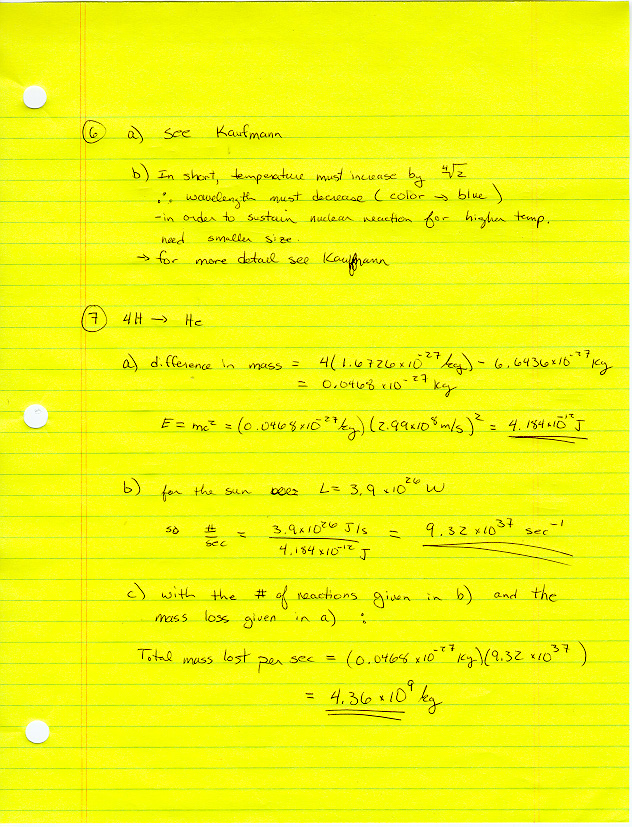 6 a) see Kaufmann
b) In short, temperature must increase by ⁴√2
∴ wavelength must decrease (color → blue)
-in order to sustain nuclear reaction for higher temp.
need smaller size.
→ for more detail see Kauffmann
7 4H → He
a) difference in mass = 4(1.6726x10⁻²⁷ kg) - 6.6436x10⁻²⁷ kg
= 0.0468 x10⁻²⁷ kg
E = mc² = (0.0468x10⁻²⁷ kg)(2.99x10⁸ m/s)² = 4.184x10⁻¹² J
b) for the sun L = 3.9 x10²⁶ W
so #/sec = 3.9x10²⁶ J/s / 4.184 x10⁻¹² J = 9.32 x10³⁷ sec⁻¹
c) with the # of reactions given in b) and the
mass loss given in a) :
Total mass lost per sec = (0.0468 x10⁻²⁷ kg)(9.32 x10³⁷)
= 4.36 x 10⁹ kg